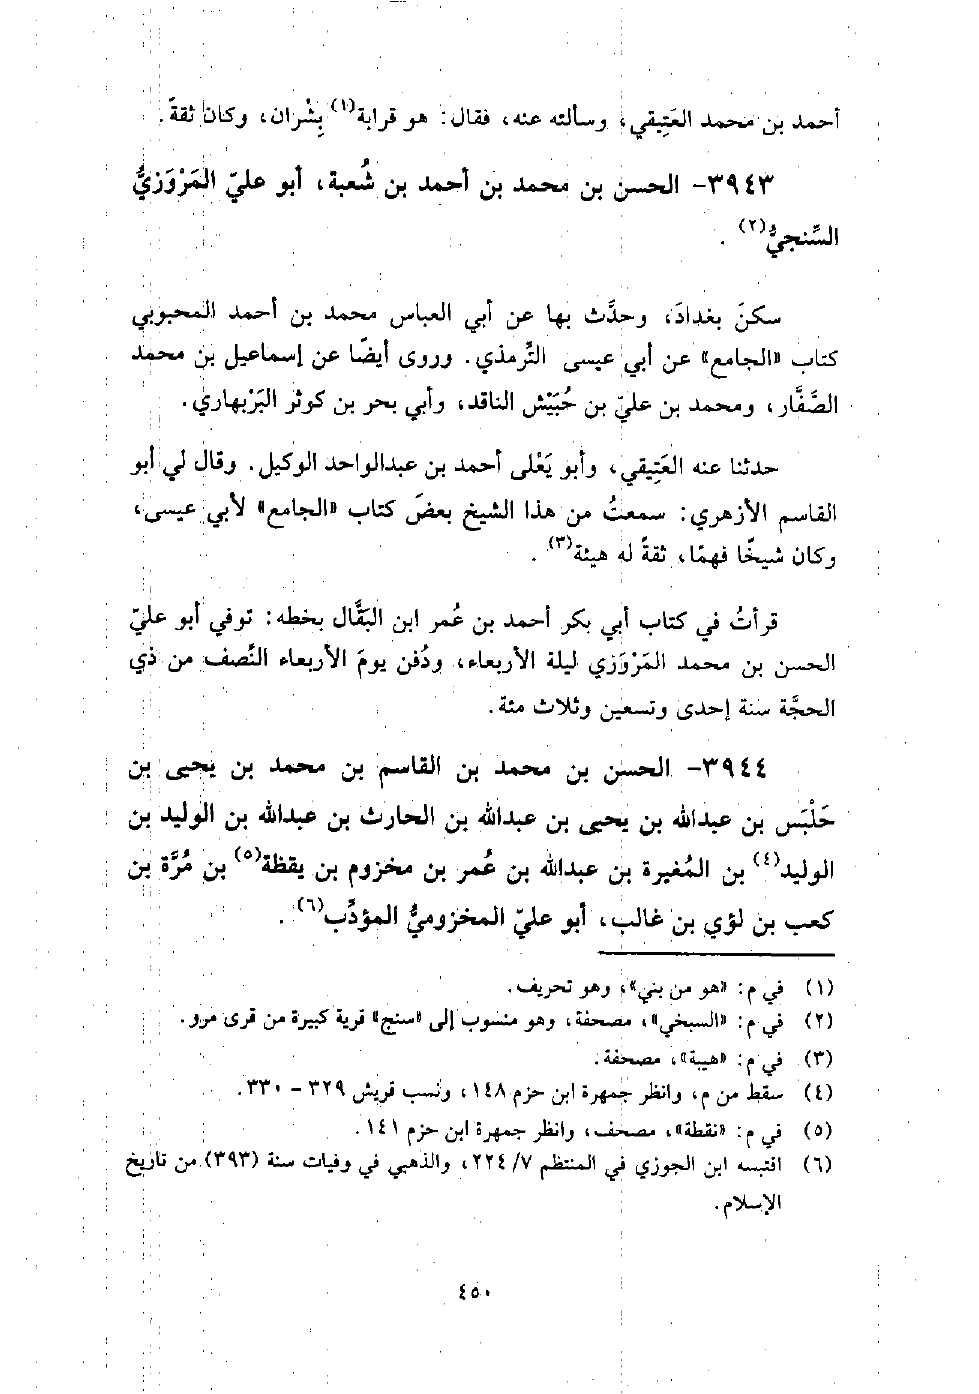 أحمد بن محمد العَتِيقي، وسألته عنه، فقال: هو قرابة(١) بِشْران، وكان ثقةً.
٣٩٤٣- الحسن بن محمد بن أحمد بن شُعبة، أبو عليّ المَرْوَزيُّ
السِّنجيُّ(٢).
سكنَ بغدادَ، وحدَّث بها عن أبي العباس محمد بن أحمد المحبوبي
كتاب «الجامع» عن أبي عيسى التِّرمذي. وروى أيضًا عن إسماعيل بن محمد
الصَّفَّار، ومحمد بن عليّ بن حُبَيْش الناقد، وأبي بحر بن كوثر البَرْبهاري.
حدثنا عنه العَتِيقي، وأبو يَعْلى أحمد بن عبدالواحد الوكيل. وقال لي أبو
القاسم الأزهري: سمعتُ من هذا الشيخ بعضَ كتاب «الجامع» لأبي عيسى،
وكان شيخًا فهمًا، ثقةً له هيئة(٣).
قرأتُ في كتاب أبي بكر أحمد بن عُمر ابن البَقَّال بخطه: توفي أبو عليّ
الحسن بن محمد المَرْوَزي ليلة الأربعاء، ودُفن يومَ الأربعاء النِّصف من ذي
الحجَّة سنة إحدى وتسعين وثلاث مئة.
٣٩٤٤- الحسن بن محمد بن القاسم بن محمد بن يحيى بن
حَلْبَس بن عبدالله بن يحيى بن عبدالله بن الحارث بن عبدالله بن الوليد بن
الوليد(٤) بن المُغيرة بن عبدالله بن عُمر بن مخزوم بن يقظة(٥) بن مُرَّة بن
كعب بن لؤي بن غالب، أبو عليّ المخزوميُّ المؤدِّب(٦).
(١) في م: «هو من بني»، وهو تحريف.
(٢) في م: «السبخي»، مصحفة، وهو منسوب إلى «سنج» قرية كبيرة من قرى مرو.
(٣) في م: «هيبة»، مصحفة.
(٤) سقط من م، وانظر جمهرة ابن حزم ١٤٨، ونسب قريش ٣٢٩ - ٣٣٠.
(٥) في م: «نقطة»، مصحف، وانظر جمهرة ابن حزم ١٤١.
(٦) اقتبسه ابن الجوزي في المنتظم ٧/ ٢٢٤، والذهبي في وفيات سنة (٣٩٣) من تاريخ
الإسلام.
٤٥٠